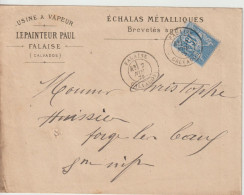 USINE A VAPEUR
LEPAINTEUR PAUL
FALAISE
(CALVADOS)
ÉCHALAS MÉTALLIQUES
Brevetés
FALAISE
Monsieur Christophe
huissier
forge les Eaux